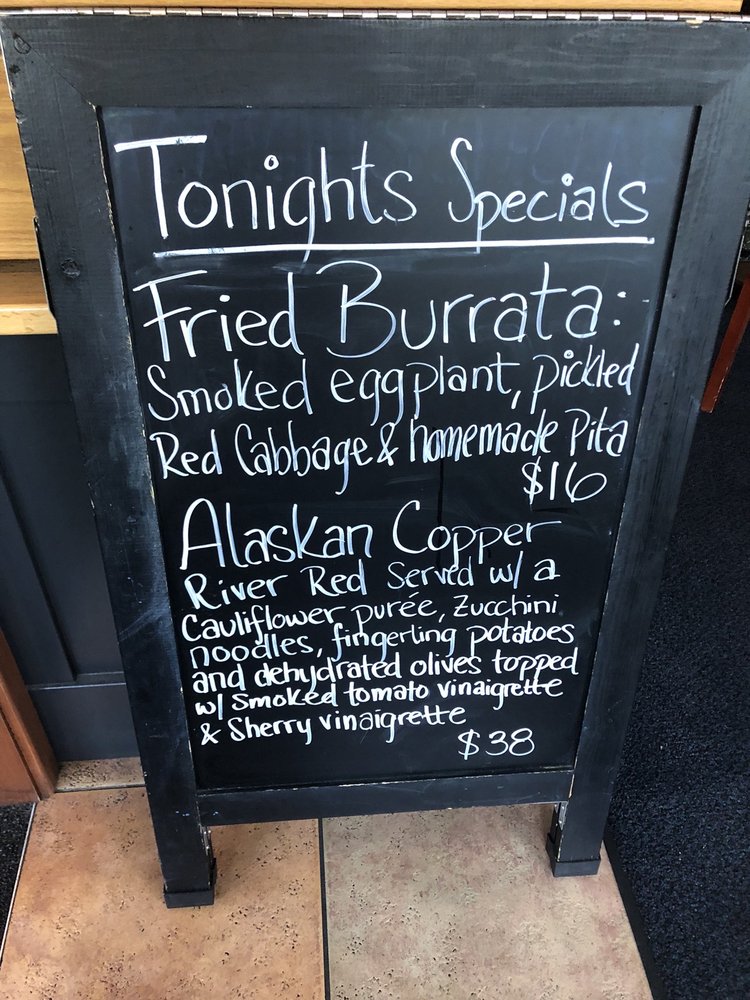 Tonights Specials
Fried Burrata:
Smoked eggplant, pickled
Red Cabbage & homemade Pita
$16
Alaskan Copper
River Red Served w/ a
Cauliflower purée, Zucchini
noodles, fingerling potatoes
and dehydrated olives topped
w/ Smoked tomato vinaigrette
& Sherry vinaigrette
$38